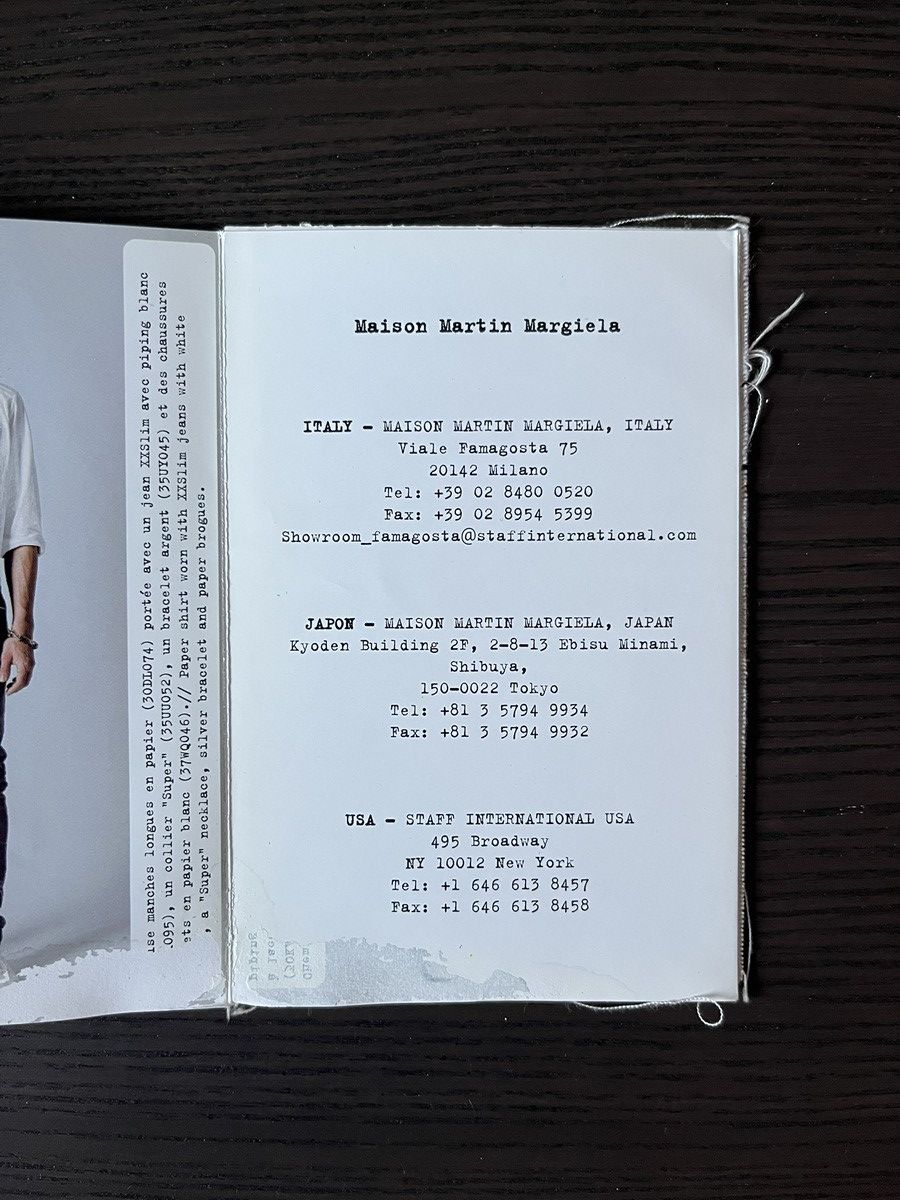 ise manches longues en papier (30DL074) portée avec un jean XXSlim avec piping blanc
.095), un collier "Super" (35UU052), un bracelet argent (35UY045) et des chaussures
ets en papier blanc (37WQ046).// Paper shirt worn with XXSlim jeans with white
, a "Super" necklace, silver bracelet and paper brogues.
Maison Martin Margiela
ITALY - MAISON MARTIN MARGIELA, ITALY
Viale Famagosta 75
20142 Milano
Tel: +39 02 8480 0520
Fax: +39 02 8954 5399
Showroom_famagosta@staffinternational.com
JAPON - MAISON MARTIN MARGIELA, JAPAN
Kyoden Building 2F, 2-8-13 Ebisu Minami,
Shibuya,
150-0022 Tokyo
Tel: +81 3 5794 9934
Fax: +81 3 5794 9932
USA - STAFF INTERNATIONAL USA
495 Broadway
NY 10012 New York
Tel: +1 646 613 8457
Fax: +1 646 613 8458
piping